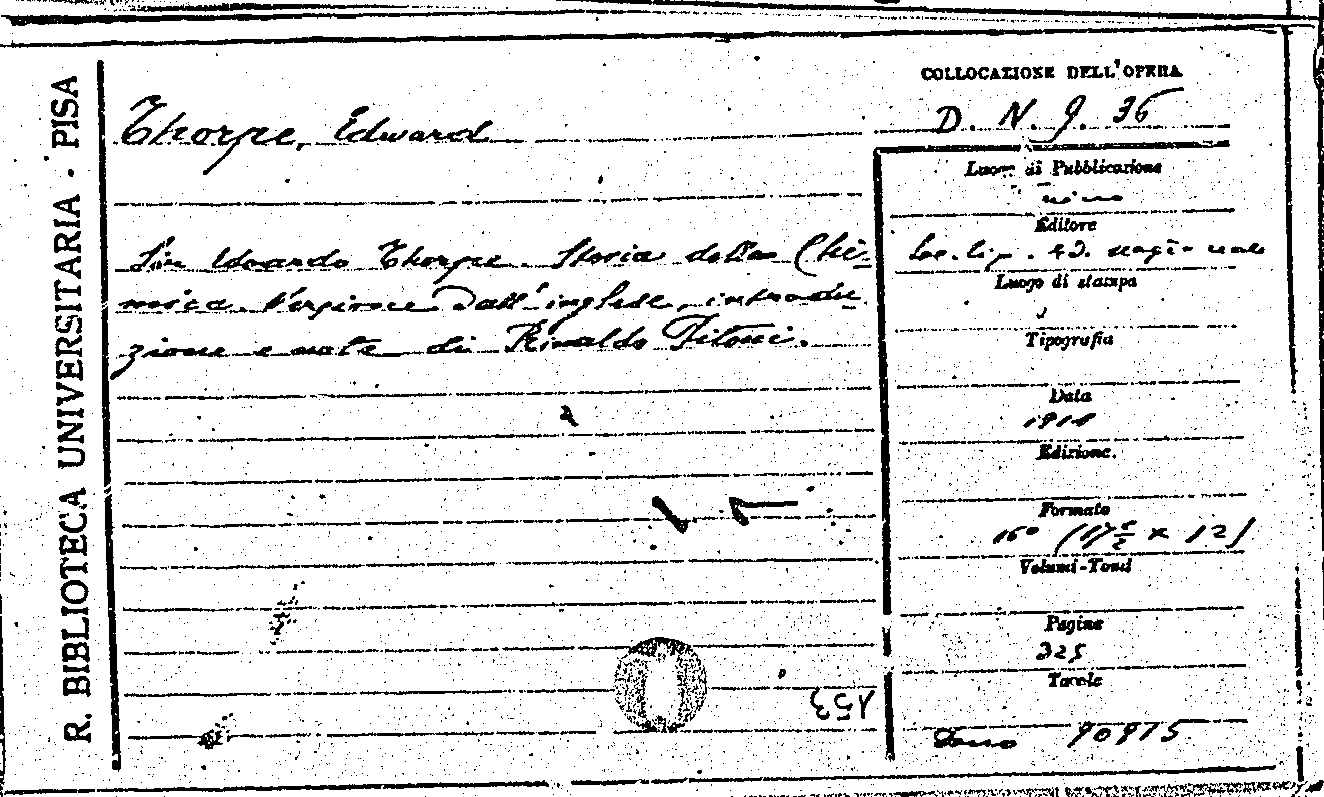 R. BIBLIOTECA UNIVERSITARIA · PISA
Thorpe, Edward
Sir Edoardo Thorpe. Storia della Chi-
mica. Versione dall'inglese, introdu-
zione e note di Rinaldo Pitoni.
COLLOCAZIONE DELL'OPERA
D. N. 9. 36
Luogo di Pubblicazione
Editore
Soc. tip. ed. nazionale
Luogo di stampa
Tipografia
Data
Edizione.
Formato
16° (17 ½ x 12)
Volumi-Tomi
Pagine
325
Tavole
Dono 90915
153